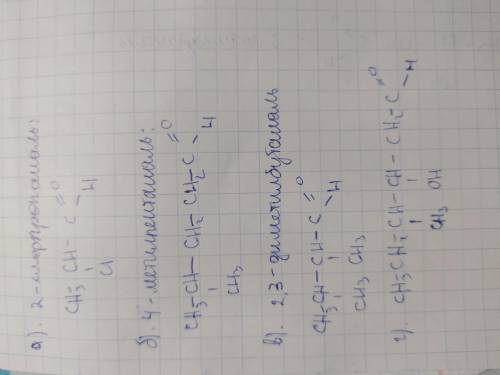 а). 2-хлорпропаналь:
CH₃-CH-C=O
Cl H
б). 4-метилпентаналь:
CH₃-CH-CH₂-CH₂-C=O
CH₃ H
в). 2,3-диметилбутаналь
CH₃-CH-CH-C=O
CH₃ CH₃ H
г). CH₃-CH₂-CH-CH-CH₂-C=O
CH₃ OH H